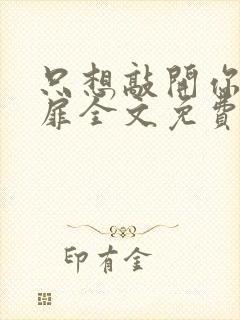 只想敲開你
扉全文免費
印有金